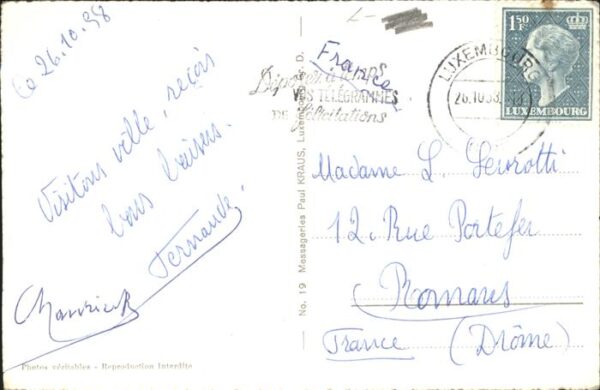 Ce 26.10.58
Visitons ville, reçois
bons baisers.
Fernande,
Maurice
Photos véritables - Reproduction Interdite
No. 19 Messageries Paul KRAUS, Luxembourg
D.
France
Déposez à temps
VOS TÉLÉGRAMMES
DE félicitations
LUXEMBOURG
26.10.58
1.50 F
LUXEMBOURG
Madame L.
12. Rue Portefer
Romans
France (Drôme)